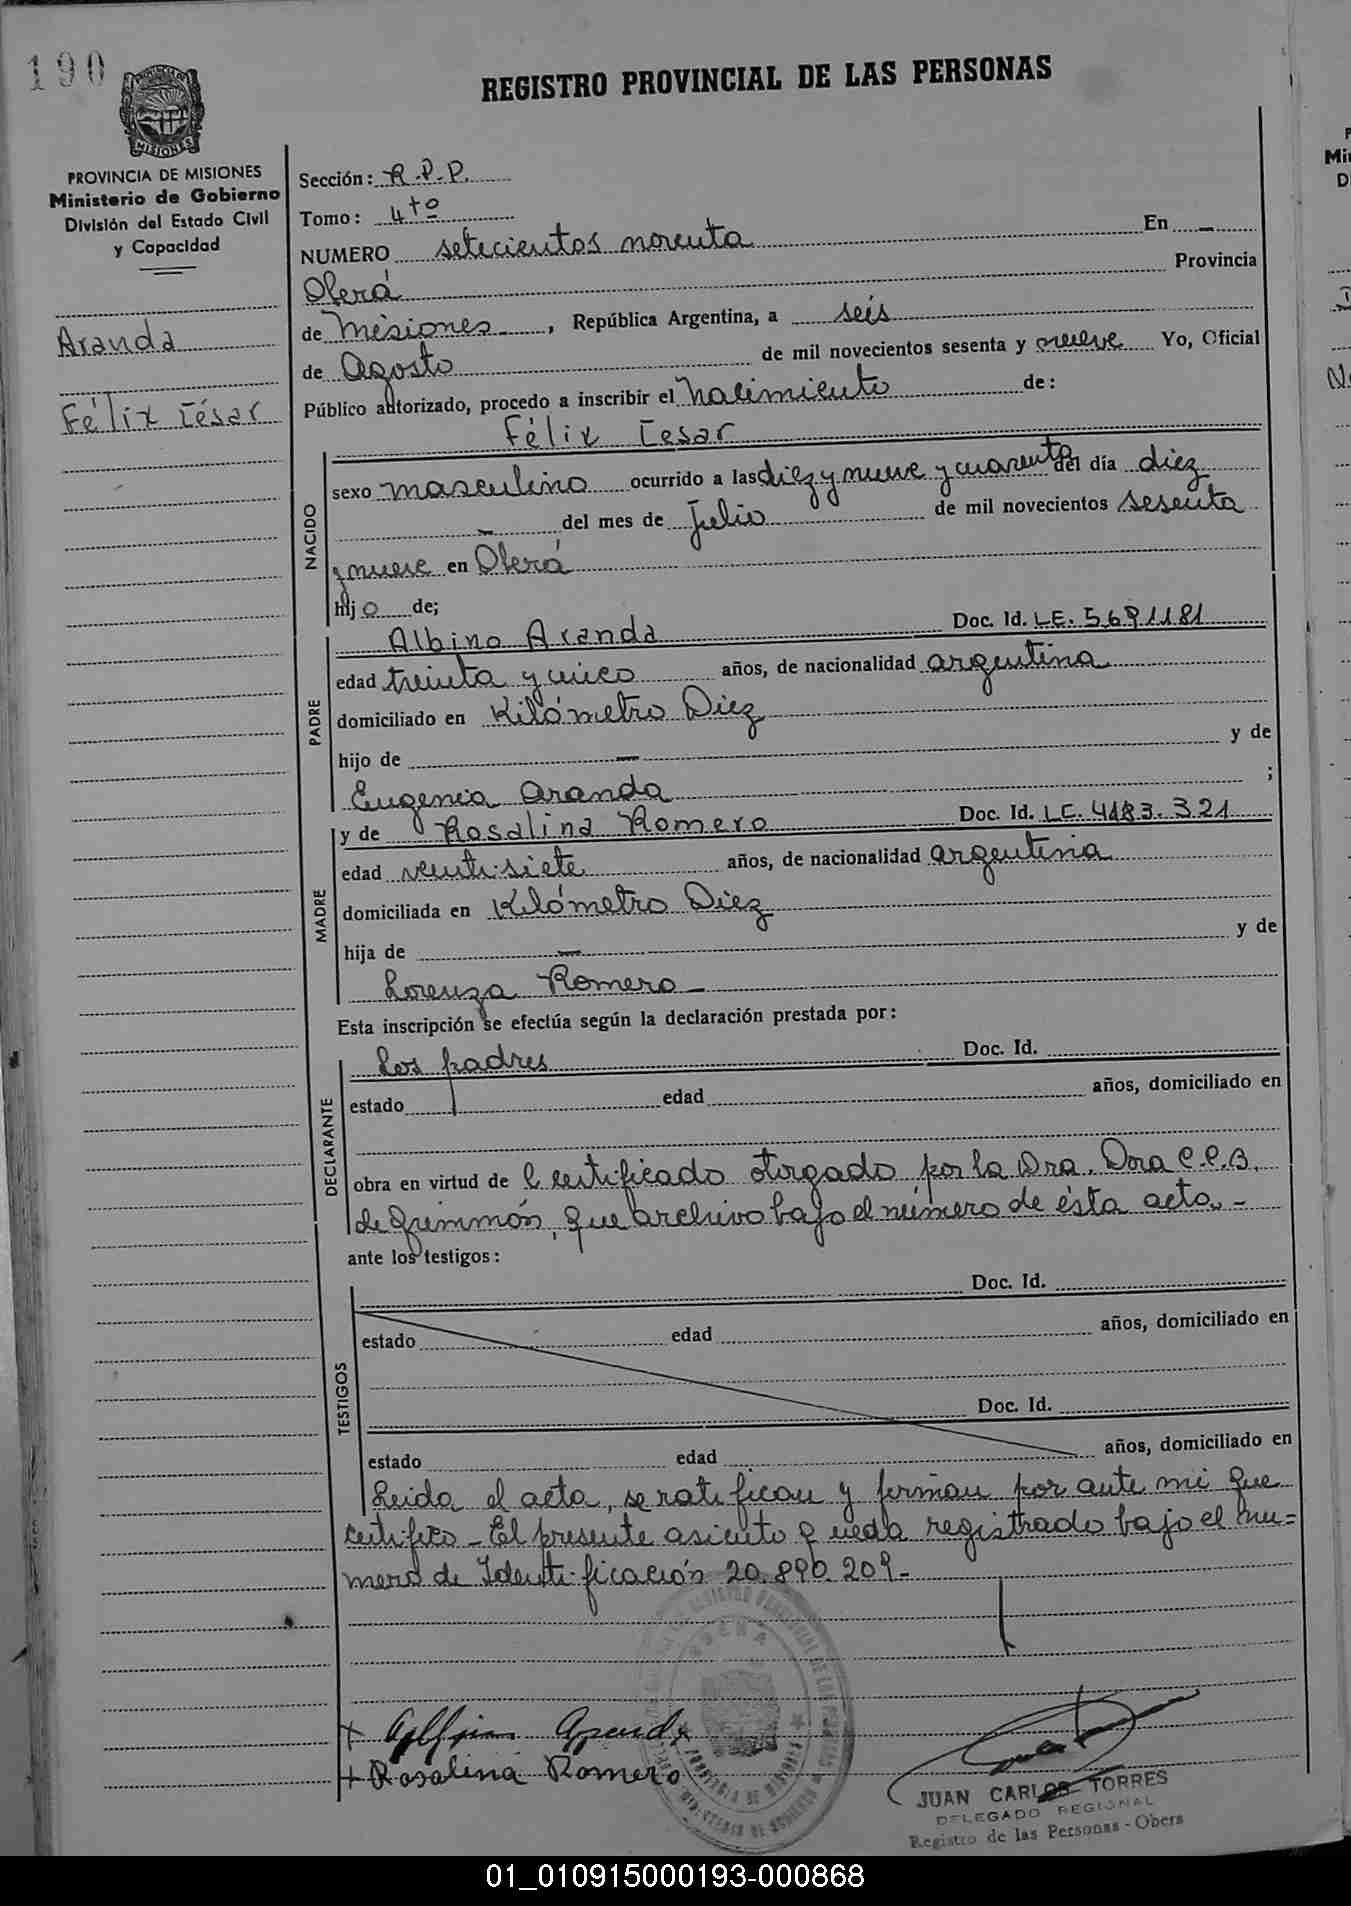 190
REGISTRO PROVINCIAL DE LAS PERSONAS
MISIONES
PROVINCIA DE MISIONES
Ministerio de Gobierno
División del Estado Civil
y Capacidad
Aranda
Félix César
Sección: R.P.P.
Tomo: 4to
NUMERO setecientos noventa En —
Oberá Provincia
de Misiones, República Argentina, a seis
de Agosto de mil novecientos sesenta y nueve Yo, Oficial
Público autorizado, procedo a inscribir el nacimiento de:
Félix Cesar
NACIDO
sexo masculino ocurrido a las diez y nueve y cuarenta del día diez
— del mes de Julio de mil novecientos sesenta
y nueve en Oberá
hijo de;
PADRE
Albino Aranda Doc. Id. LE. 5691181
edad treinta y cinco años, de nacionalidad argentina
domiciliado en Kilómetro Diez
hijo de — y de
Eugenia Aranda ;
MADRE
y de Rosalina Romero Doc. Id. LC. 4183.321
edad veintisiete años, de nacionalidad argentina
domiciliada en Kilómetro Diez
hija de — y de
Lorenza Romero —
Esta inscripción se efectúa según la declaración prestada por:
DECLARANTE
Los padres Doc. Id.
estado edad años, domiciliado en
obra en virtud de l certificado otorgado por la Dra. Dora C.C.B.
de Grimmón, que archivo bajo el número de ésta acta. -
ante los testigos:
TESTIGOS
Doc. Id.
estado edad años, domiciliado en
Doc. Id.
estado edad años, domiciliado en
Leida el acta, se ratifican y firman por ante mi que
certifico - El presente asiento queda registrado bajo el nu=
mero de Identificación 20.890.209 -
+ Aranda
+ Rosalina Romero
JUAN CARLOS TORRES
DELEGADO REGIONAL
Registro de las Personas - Obera
01_010915000193-000868